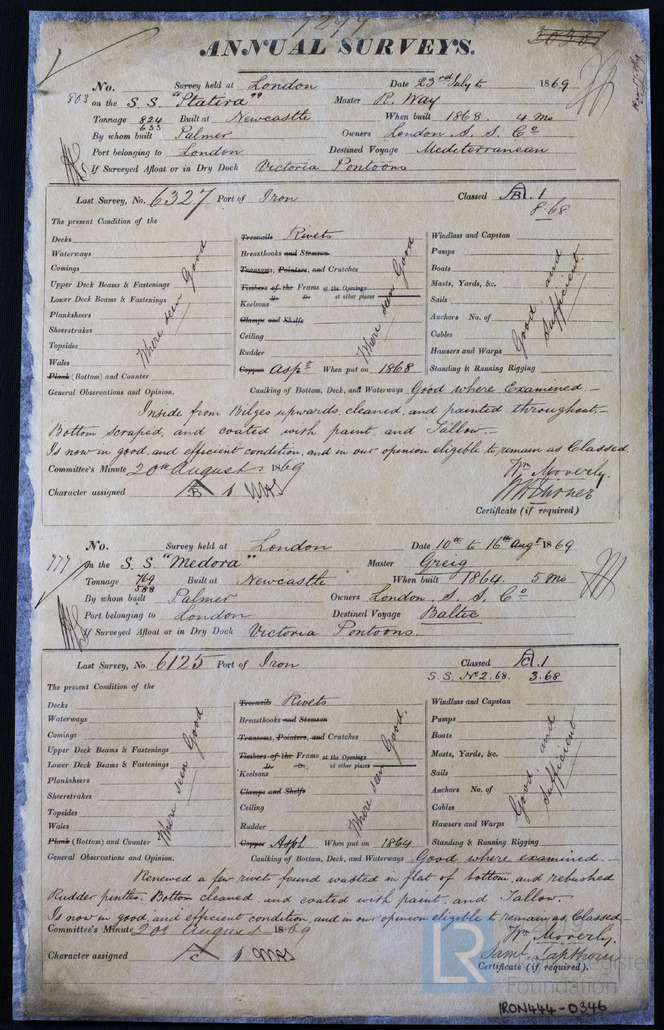 7297
ANNUAL SURVEYS.
30301
No. Survey held at London Date 23rd July to 1869
803 on the S. S. "Statira" Master R. Way
Tonnage 824 Built at Newcastle When built 1868. 4 Mo
633
By whom built Palmer Owners London. S. S. Co
Port belonging to London Destined Voyage Mediterranean
If Surveyed Afloat or in Dry Dock Victoria Pontoons
Last Survey, No. 6327 Port of Iron Classed A B 1
8.68
The present Condition of the
Decks
Waterways
Comings
Upper Deck Beams & Fastenings
Lower Deck Beams & Fastenings
Planksheers
Sheerstrakes
Topsides
Wales
Plank (Bottom) and Counter
Where seen Good
Treenails Rivets
Breasthooks and Stemson
Transoms, Pointers, and Crutches
Timbers of the Frame at the Openings
Do. Do. at other places
Keelsons
Clamps and Shelfs
Ceiling
Rudder
Copper Aspt When put on 1868
Where seen Good
Windlass and Capstan
Pumps
Boats
Masts, Yards, &c.
Sails
Anchors No. of
Cables
Hawsers and Warps
Standing & Running Rigging
Good and sufficient
General Observations and Opinion. Caulking of Bottom, Deck, and Waterways Good where Examined.
Inside from Bilges upwards cleaned, and painted throughout.
Bottom scraped, and coated with paint, and Tallow.
Is now in good, and efficient condition, and in our opinion eligible to remain as Classed.
Committee's Minute 20th August 1869 Wm Moverly.
Character assigned A B 1
Certificate (if required)
No. Survey held at London Date 10th to 16th Augt 1869
777 On the S. S. "Medora" Master Greig
Tonnage 769 Built at Newcastle When built 1864. 5 Mo
588
By whom built Palmer Owners London. S. S. Co
Port belonging to London Destined Voyage Baltic
If Surveyed Afloat or in Dry Dock Victoria Pontoons.
Last Survey, No. 6125 Port of Iron Classed A C 1
S. S. No 2. 68. 3.68
The present Condition of the
Decks
Waterways
Comings
Upper Deck Beams & Fastenings
Lower Deck Beams & Fastenings
Planksheers
Sheerstrakes
Topsides
Wales
Plank (Bottom) and Counter
Where seen Good
Treenails Rivets
Breasthooks and Stemson
Transoms, Pointers, and Crutches
Timbers of the Frame at the Openings
Do. Do. at other places
Keelsons
Clamps and Shelfs
Ceiling
Rudder
Copper Aspt When put on 1864
Where seen Good.
Windlass and Capstan
Pumps
Boats
Masts, Yards, &c.
Sails
Anchors No. of
Cables
Hawsers and Warps
Standing & Running Rigging
Good and sufficient
General Observations and Opinion. Caulking of Bottom, Deck, and Waterways Good where examined.
Renewed a few rivets found wasted in flat of bottom, and rebushed
Rudder pintles. Bottom cleaned and coated with paint, and Tallow.
Is now in good, and efficient condition, and in our opinion eligible to remain as Classed.
Committee's Minute 20th August 1869 Wm Moverly.
Character assigned A C 1 Saml Tapthorn
Certificate (if required).
LR Foundation
IRON444-0346